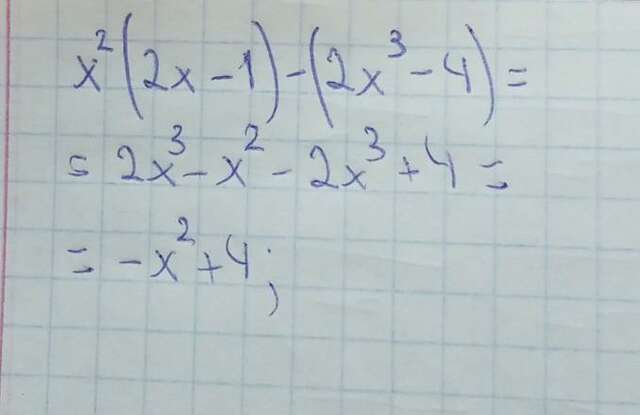 x²(2x-1)-(2x³-4)=
=2x³-x²-2x³+4=
=-x²+4;